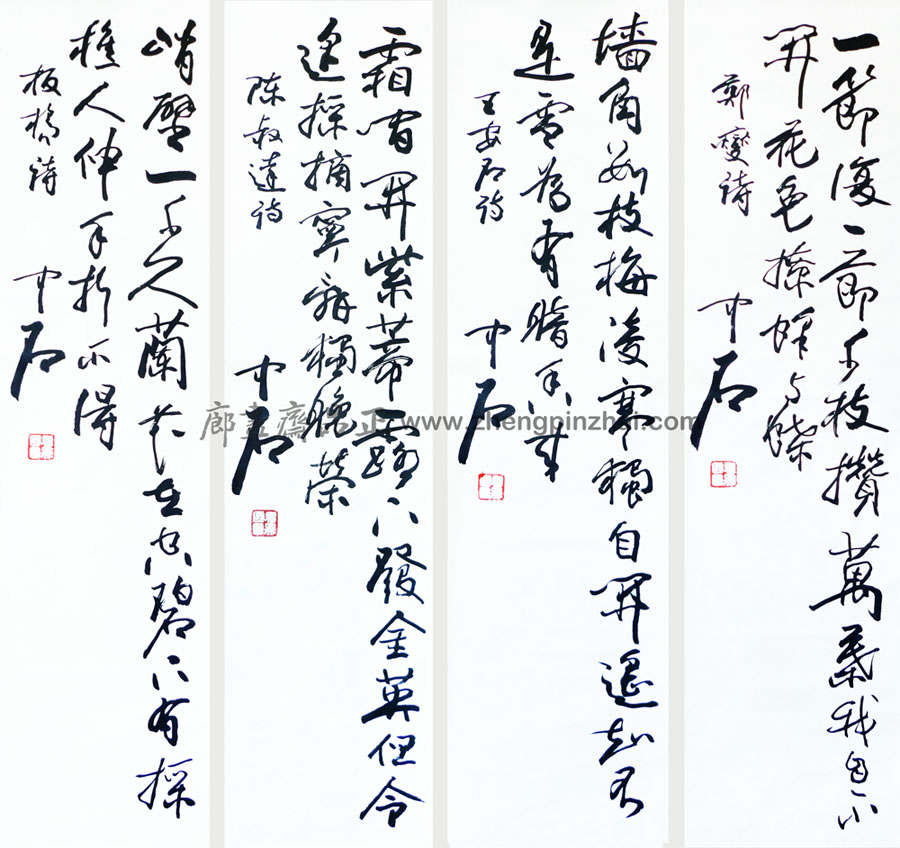 一節復一節千枝攢萬葉我自不
開花免撩蜂与蝶
鄭燮詩
中石
墙角數枝梅凌寒獨自開遥知不
是雪为有暗香来
王安石詩
中石
霜間開紫蒂露下發金英但令
逢採摘寧辭獨晚榮
陈叔達詩
中石
峭壁一千尺蘭花在空碧下有採
樵人伸手折不得
板橋詩
中石
廊畫齋品正 www.zhengpinzhai.com